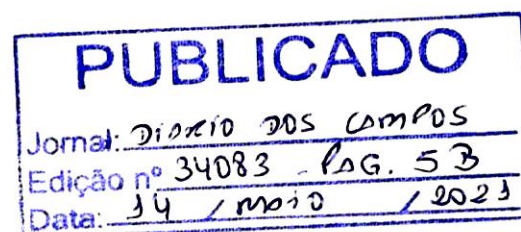 PUBLICADO
Jornal: DIÁRIO DOS CAMPOS
Edição nº 34083 - PAG. 5B
Data: 14 / MAIO / 2021